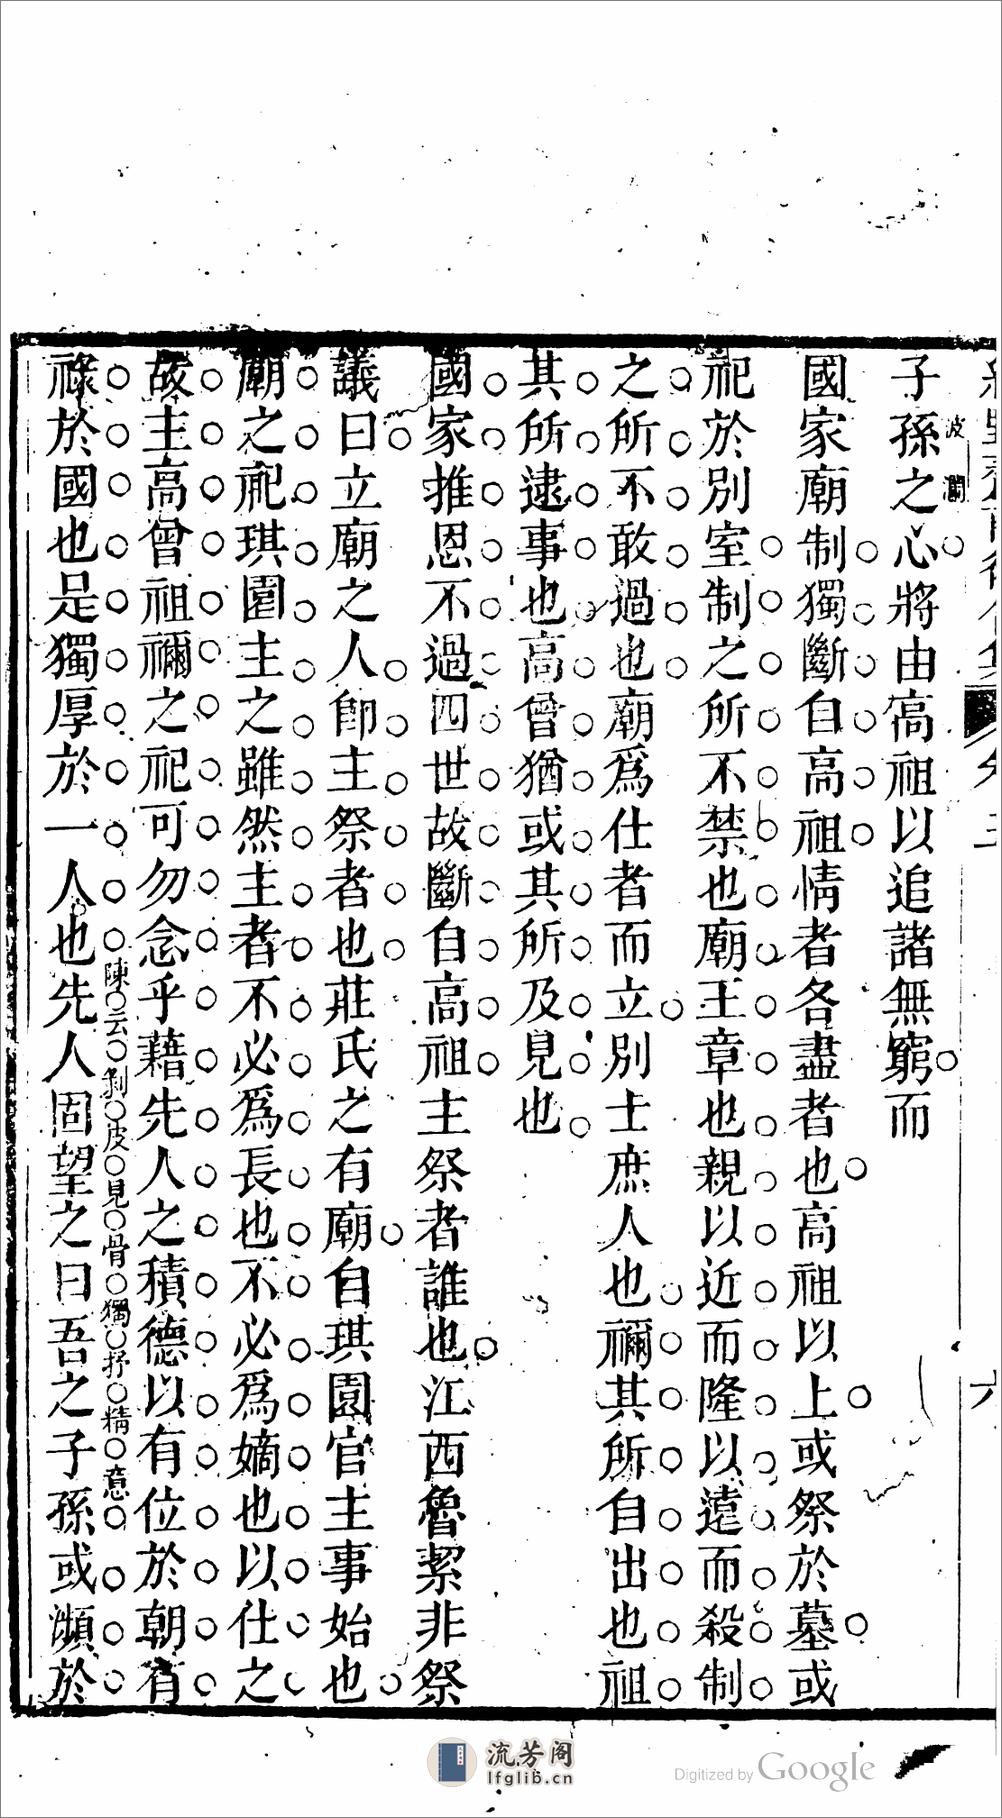 子孫之心將由高祖以追諸無窮而
波瀾
國家廟制獨斷自高祖情者各盡者也高祖以上或祭於墓或
祀於別室制之所不禁也廟王章也親以近而隆以遠而殺制
之所不敢過也廟爲仕者而立別士庶人也禰其所自出也祖
其所逮事也高曾猶或其所及見也
國家推恩不過四世故斷自高祖主祭者誰也江西魯絜非祭
議曰立廟之人卽主祭者也莊氏之有廟自琪園官主事始也
廟之祀琪園主之雖然主者不必爲長也不必爲嫡也以仕之
故主高曾祖禰之祀可勿念乎藉先人之積德以有位於朝有
祿於國也是獨厚於一人也先人固望之曰吾之子孫或瀕於
陳云剝皮見骨獨抒精意
六
流芳阁
lfglib.cn
Digitized by Google